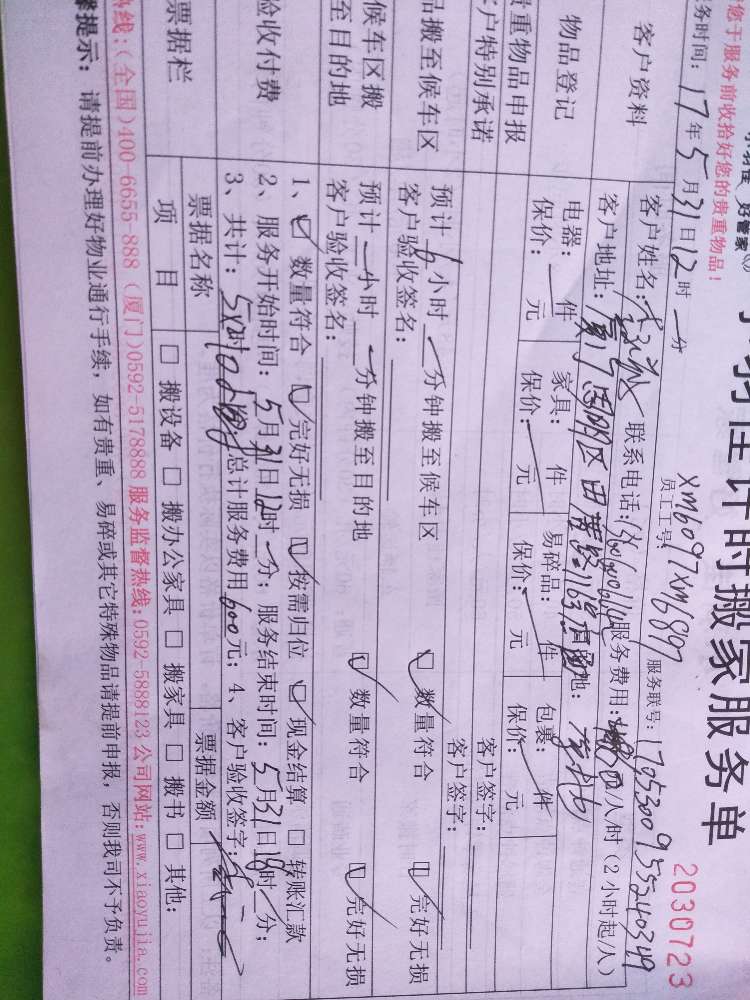 易佳计时搬家服务单
2030723
您于服务前收拾好您的贵重物品!
务时间: 17年5月31日12时 分
员工工号 XM6097XM6897
服务联号:
客户资料
客户姓名: 联系电话: 服务费用: /人/时(2小时起/人)
客户地址: 厦门思明区
物品登记
电器: 件 家具: 件 易碎品: 件 包裹: 件
保价: 元 保价: 元 保价: 元 保价: 元
贵重物品申报
客户签字:
客户特别承诺
客户签字:
品搬至候车区
预计6小时 分钟搬至候车区 数量符合 完好无损
客户验收签名:
候车区搬至目的地
预计 小时 分钟搬至目的地 数量符合 完好无损
客户验收签名:
验收付费
1、数量符合 完好无损 按需归位 现金结算 转账汇款
2、服务开始时间: 5月31日12时 分; 服务结束时间: 5月31日18时 分;
3、共计: 总计服务费用600元; 4、客户验收签字:
票据栏
票据名称 票据金额
项目 搬设备 搬办公家具 搬家具 搬书 其他:
热线:(全国)400-6655-888 (厦门)0592-5178888 服务监督热线:0592-5888123 公司网站:www.xiaoyujia.com
馨提示: 请提前办理好物业通行手续, 如有贵重、易碎或其它特殊物品请提前申报, 否则我司不予负责。